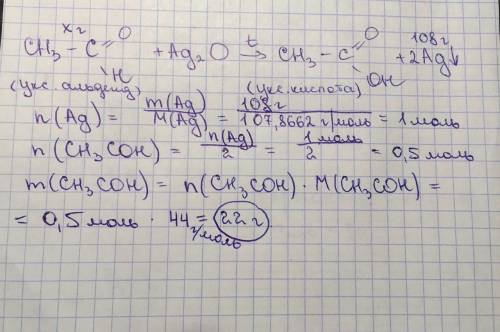 x г
108 г
CH₃ – C (=O) – H + Ag₂O →t CH₃ – C (=O) – OH + 2Ag↓
(укс. альдегид) (укс. кислота)
n(Ag) = m(Ag)/M(Ag) = 108 г/107,8662 г/моль = 1 моль
n(CH₃COH) = n(Ag)/2 = 1 моль/2 = 0,5 моль
m(CH₃COH) = n(CH₃COH) · M(CH₃COH) =
= 0,5 моль · 44 г/моль = 22 г